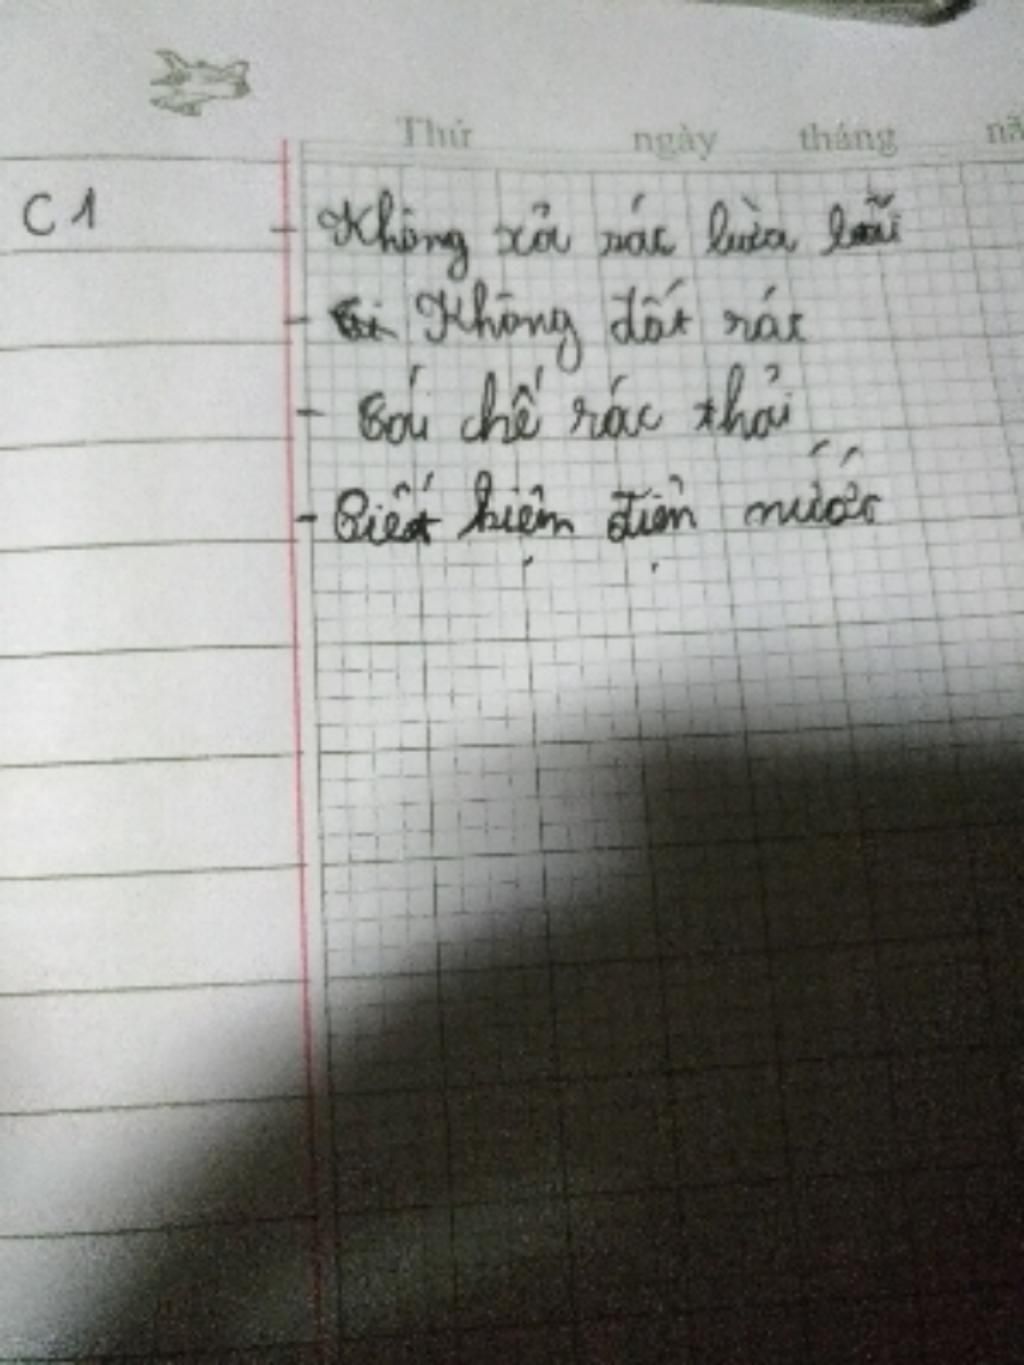 Thứ ngày tháng nă
C1 - Không xả rác bừa bãi
- Không đốt rác
- Tái chế rác thải
- Tiết kiệm điện nước